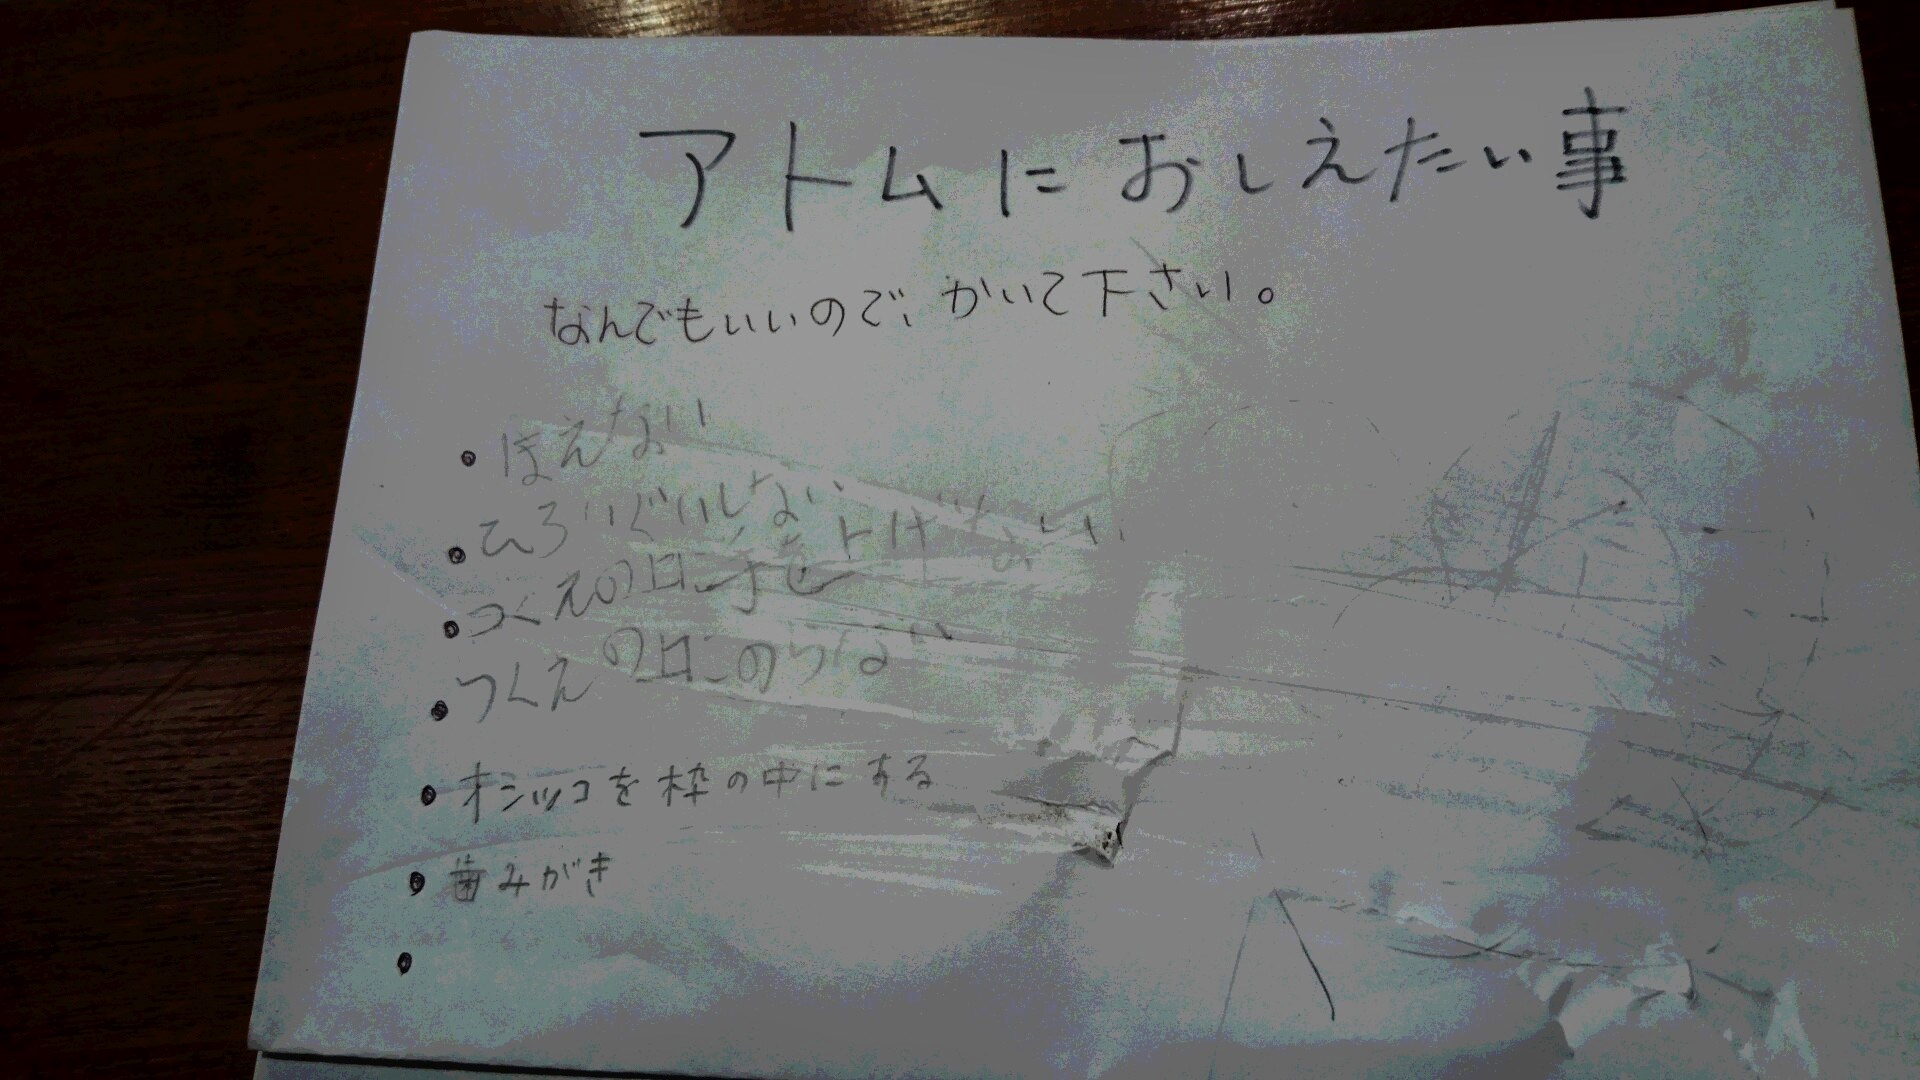 アトムにおしえたい事
なんでもいいので、かいて下さい。
• ほえない
• ひろいぐいしない
• つくえの上に手を上げない
• つくえの上にのらない
• オシッコを枠の中にする
• 歯みがき
•